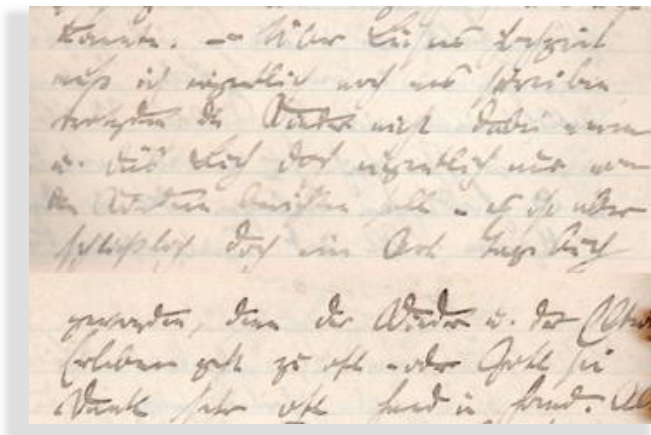 können. – Über Luis Hochzeit
muß ich eigentlich noch was schreiben
trotzdem die Kinder nicht dabei waren
u. das Buch doch eigentlich nur von
den Kindern berichten soll – es ist aber
schließlich doch ein Art Tagebuch
geworden, denn der Kinder u. der Eltern
Erleben geht zu oft – oder Gott sei
Dank sehr oft Hand in Hand.